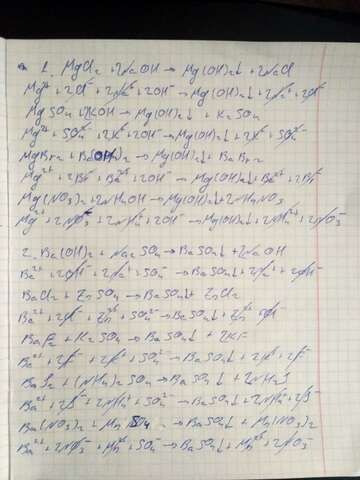 1. MgCl2 + 2NaOH → Mg(OH)2↓ + 2NaCl
Mg2+ + 2Cl- + 2Na+ + 2OH- → Mg(OH)2↓ + 2Na+ + 2Cl-
MgSO4 + 2KOH → Mg(OH)2↓ + K2SO4
Mg2+ + SO42- + 2K+ + 2OH- → Mg(OH)2↓ + 2K+ + SO42-
MgBr2 + Ba(OH)2 → Mg(OH)2↓ + BaBr2
Mg2+ + 2Br- + Ba2+ + 2OH- → Mg(OH)2↓ + Ba2+ + 2Br-
Mg(NO3)2 + 2NH4OH → Mg(OH)2↓ + 2NH4NO3
Mg2+ + 2NO3- + 2NH4+ + 2OH- → Mg(OH)2↓ + 2NH4+ + 2NO3-
2. Ba(OH)2 + Na2SO4 → BaSO4↓ + 2NaOH
Ba2+ + 2OH- + 2Na+ + SO42- → BaSO4↓ + 2Na+ + 2OH-
BaCl2 + ZnSO4 → BaSO4↓ + ZnCl2
Ba2+ + 2Cl- + Zn2+ + SO42- → BaSO4↓ + Zn2+ + 2Cl-
BaF2 + K2SO4 → BaSO4↓ + 2KF
Ba2+ + 2F- + 2K+ + SO42- → BaSO4↓ + 2K+ + 2F-
BaI2 + (NH4)2SO4 → BaSO4↓ + 2NH4I
Ba2+ + 2I- + 2NH4+ + SO42- → BaSO4↓ + 2NH4+ + 2I-
Ba(NO3)2 + MnSO4 → BaSO4↓ + Mn(NO3)2
Ba2+ + 2NO3- + Mn2+ + SO42- → BaSO4↓ + Mn2+ + 2NO3-